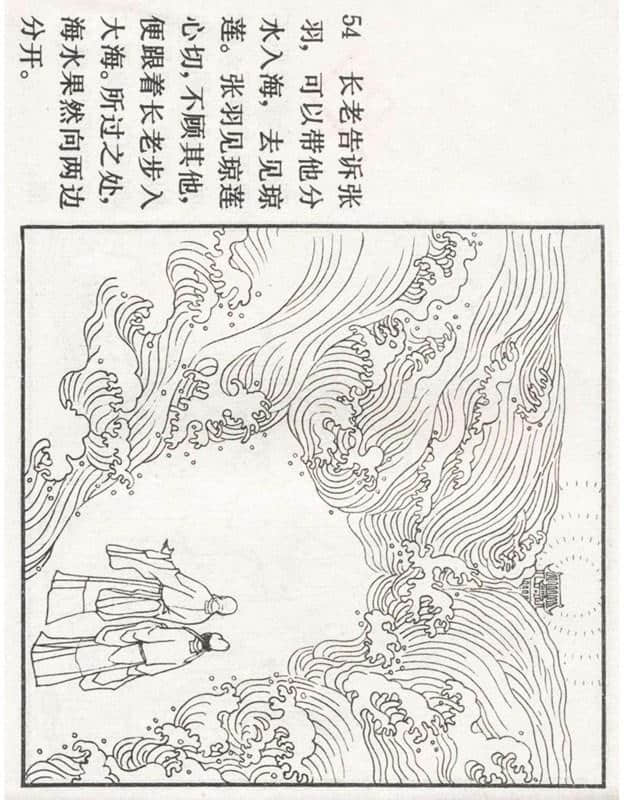 54　长老告诉张
羽，可以带他分
水入海，去见琼
莲。张羽见琼莲
心切，不顾其他，
便跟着长老步入
大海。所过之处，
海水果然向两边
分开。